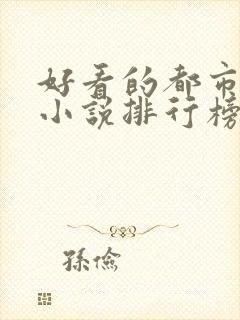 好看的都市
小说排行榜
孫儉